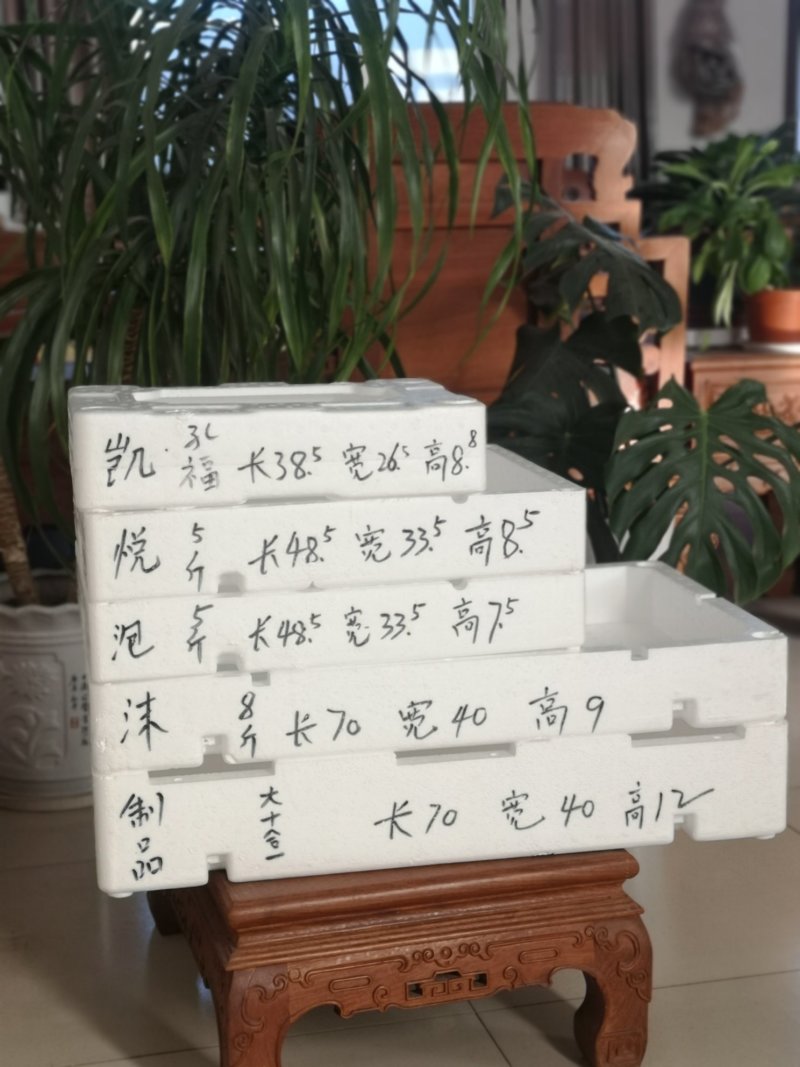 凯 孔福 长38.5 宽26.5 高8.8
悦 5斤 长48.5 宽33.5 高8.5
泡 5斤 长48.5 宽33.5 高7.5
沫 8斤 长70 宽40 高9
制品 大十合一 长70 宽40 高12